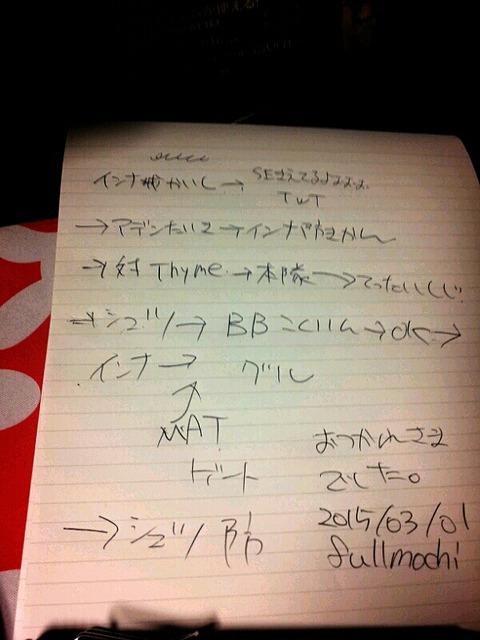 インナ かいし→ SEきえてるよよよよ
TwT
→アデンたいこ→インナ かん
→対Thyme→本隊→てったいしじ
→シュヅ→BB →ok→
インナ→ グル
MAT
トデント
おつかれさま
でした。
→シュヅ防
2015/03/01
fullmochi